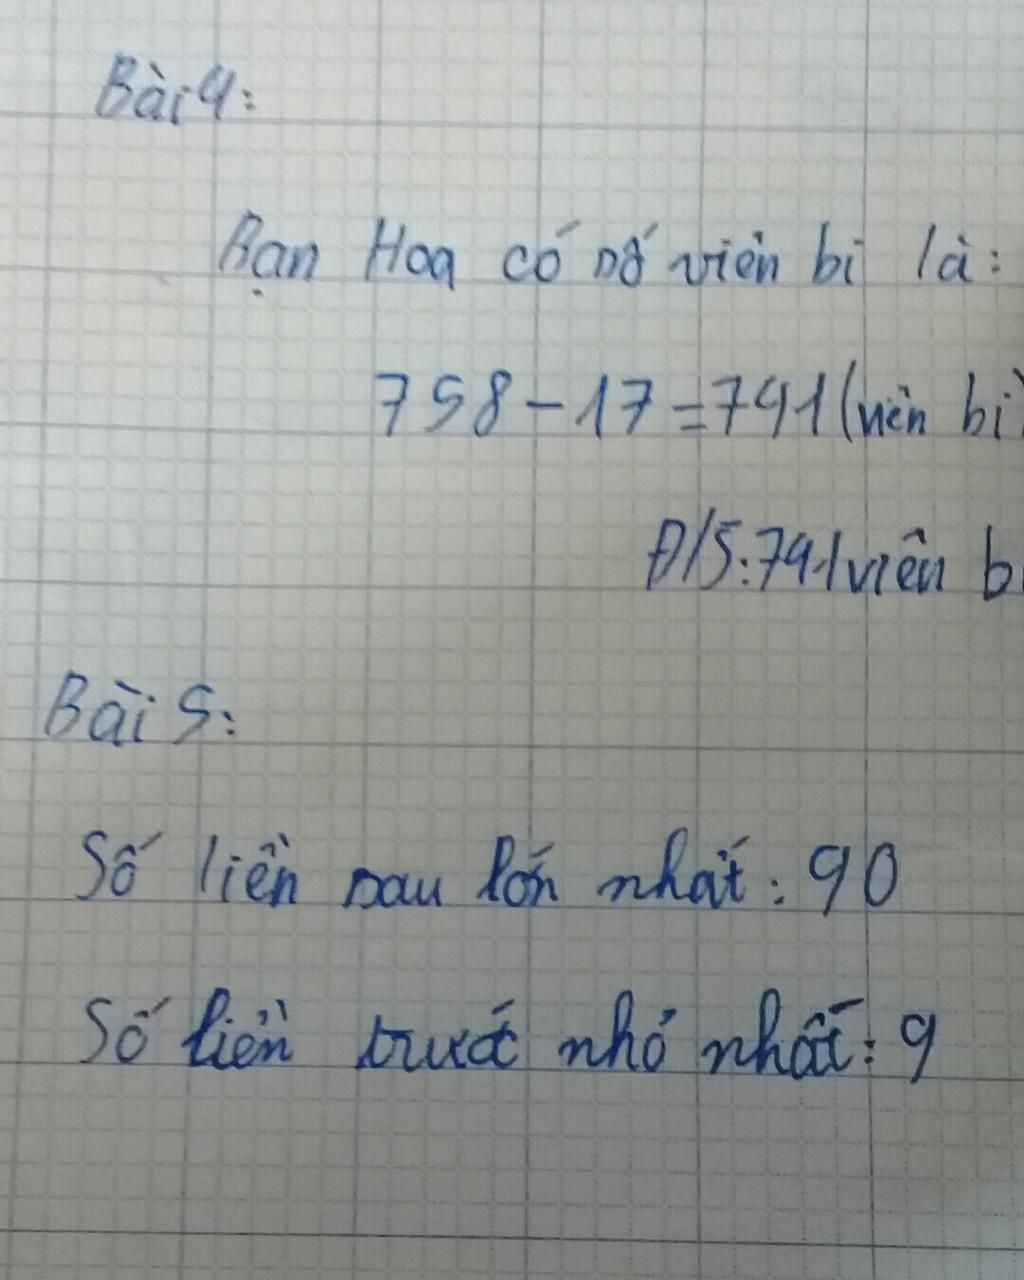 Bài 4:
Bạn Hoa có số viên bi là:
758-17=741(viên bi)
Đ/S:741viên bi
Bài 5:
Số liền sau lớn nhất: 90
Số liền trước nhỏ nhất: 9